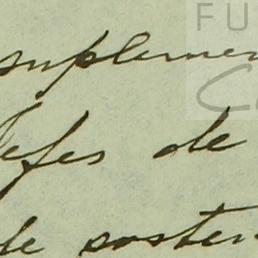 suplemen
Jefes de
de sosten
FU